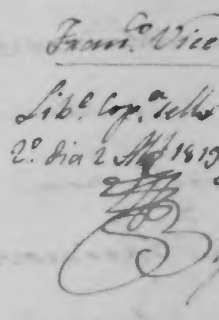 Fran.co Vice
Lib.e Cop.a sello
2.o dia 2 1819